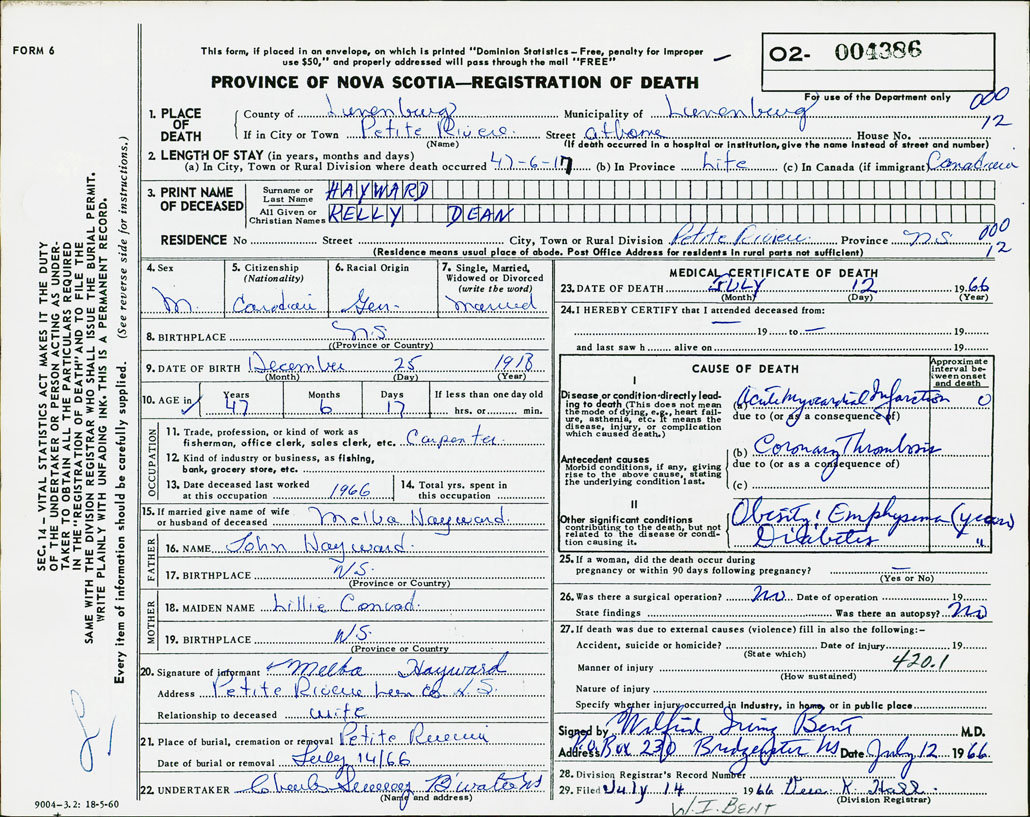 FORM 6
This form, if placed in an envelope, on which is printed "Dominion Statistics – Free, penalty for improper
use $50," and properly addressed will pass through the mail "FREE"
O2- 004386
PROVINCE OF NOVA SCOTIA—REGISTRATION OF DEATH
For use of the Department only
000
12
1. PLACE OF DEATH
County of Lunenburg Municipality of Lunenburg
If in City or Town Petite Riviere Street at home House No.
(Name) (If death occurred in a hospital or institution, give the name instead of street and number)
2. LENGTH OF STAY (in years, months and days)
(a) In City, Town or Rural Division where death occurred 47-6-17 (b) In Province Life (c) In Canada (if immigrant) Canadian
3. PRINT NAME OF DECEASED
Surname or Last Name HAYWARD
All Given or Christian Names KELLY DEAN
RESIDENCE No Street City, Town or Rural Division Petite Riviere Province N.S. 000
12
(Residence means usual place of abode. Post Office Address for residents in rural parts not sufficient)
4. Sex M.
5. Citizenship (Nationality) Canadian
6. Racial Origin Ger.
7. Single, Married, Widowed or Divorced (write the word) Married
8. BIRTHPLACE N.S.
((Province or Country)
9. DATE OF BIRTH December 25 1918
(Month) (Day) (Year)
10. AGE in Years 47 Months 6 Days 17 If less than one day old hrs. or min.
OCCUPATION
11. Trade, profession, or kind of work as
fisherman, office clerk, sales clerk, etc. Carpenter
12. Kind of industry or business, as fishing,
bank, grocery store, etc.
13. Date deceased last worked at this occupation 1966
14. Total yrs. spent in this occupation
15. If married give name of wife
or husband of deceased Melba Hayward
FATHER
16. NAME John Hayward
17. BIRTHPLACE N.S.
(Province or Country)
MOTHER
18. MAIDEN NAME Lillie Conrad
19. BIRTHPLACE N.S.
(Province or Country)
20. Signature of informant Melba Hayward
Address Petite Riviere Lun Co N.S.
Relationship to deceased wife
21. Place of burial, cremation or removal Petite Riviere
Date of burial or removal July 14/66
22. UNDERTAKER B'water NS
(Name and address)
9004—3.2: 18-5-60
SEC. 14 – VITAL STATISTICS ACT MAKES IT THE DUTY
OF THE UNDERTAKER OR PERSON ACTING AS UNDER-
TAKER TO OBTAIN ALL THE PARTICULARS REQUIRED
IN THE "REGISTRATION OF DEATH" AND TO FILE THE
SAME WITH THE DIVISION REGISTRAR WHO SHALL ISSUE THE BURIAL PERMIT.
WRITE PLAINLY WITH UNFADING INK. THIS IS A PERMANENT RECORD.
Every item of information should be carefully supplied. (See reverse side for instructions.)
MEDICAL CERTIFICATE OF DEATH
23. DATE OF DEATH JULY 12 1966
(Month) (Day) (Year)
24. I HEREBY CERTIFY that I attended deceased from:
— 19 to — 19
and last saw h alive on 19
CAUSE OF DEATH
Approximate interval between onset and death
I
Disease or condition directly lead-
ing to death (This does not mean
the mode of dying, e.g., heart fail-
ure, asthenia, etc. It means the
disease, injury, or complication
which caused death.)
(a) Acute Myocardial Infarction 0
due to (or as a consequence of)
Antecedent causes
Morbid conditions, if any, giving
rise to the above cause, stating
the underlying condition last.
(b) Coronary Thrombosis
due to (or as a consequence of)
(c)
II
Other significant conditions
contributing to the death, but not
related to the disease or condi-
tion causing it.
Obesity, Emphysema (years)
Diabetes "
25. If a woman, did the death occur during
pregnancy or within 90 days following pregnancy? —
(Yes or No)
26. Was there a surgical operation? No Date of operation 19
State findings Was there an autopsy? No
27. If death was due to external causes (violence) fill in also the following:–
Accident, suicide or homicide? Date of injury 19
(State which)
420.1
Manner of injury
(How sustained)
Nature of injury
Specify whether injury occurred in industry, in home, or in public place
Signed by Wilfrid Irving Bent M.D.
Address P.O. Box 230 Bridgewater NS Date July 12 1966
28. Division Registrar's Record Number
29. Filed July 14 1966
(Division Registrar)
W. I. BENT